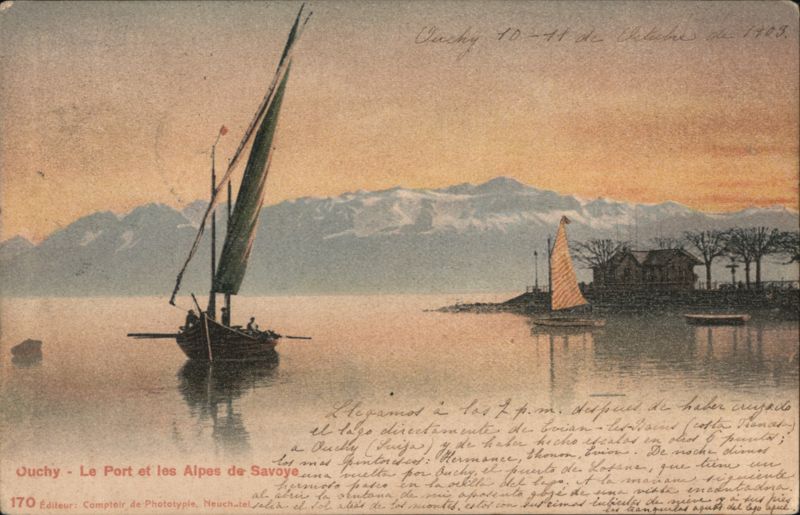 Ouchy 10-11 de Octubre de 1903.
Llegamos á las 7 p.m. despues de haber cruzado
el lago directamente de Evian-les-Bains (costa Francesa)
a Ouchy (Suiza) y de haber hecho escalas en otros 6 puntos;
los mas pintorescos: Hermance, Thonon, Evion. De noche dimos
una vuelta por Ouchy, el puerto de Losana, que tien un
hermoso paseo en la orilla del lago. A la mañana siguiente
al abrir la ventana de mi aposento gozé de una vista encantadora.
salia el sol atras de los montes, estos con sus cimas cubiertas de nieve y á sus pies
las tranquilas aguas del lago azul.
Ouchy - Le Port et les Alpes de Savoye
170 Éditeur: Comptoir de Phototypie, Neuchatel